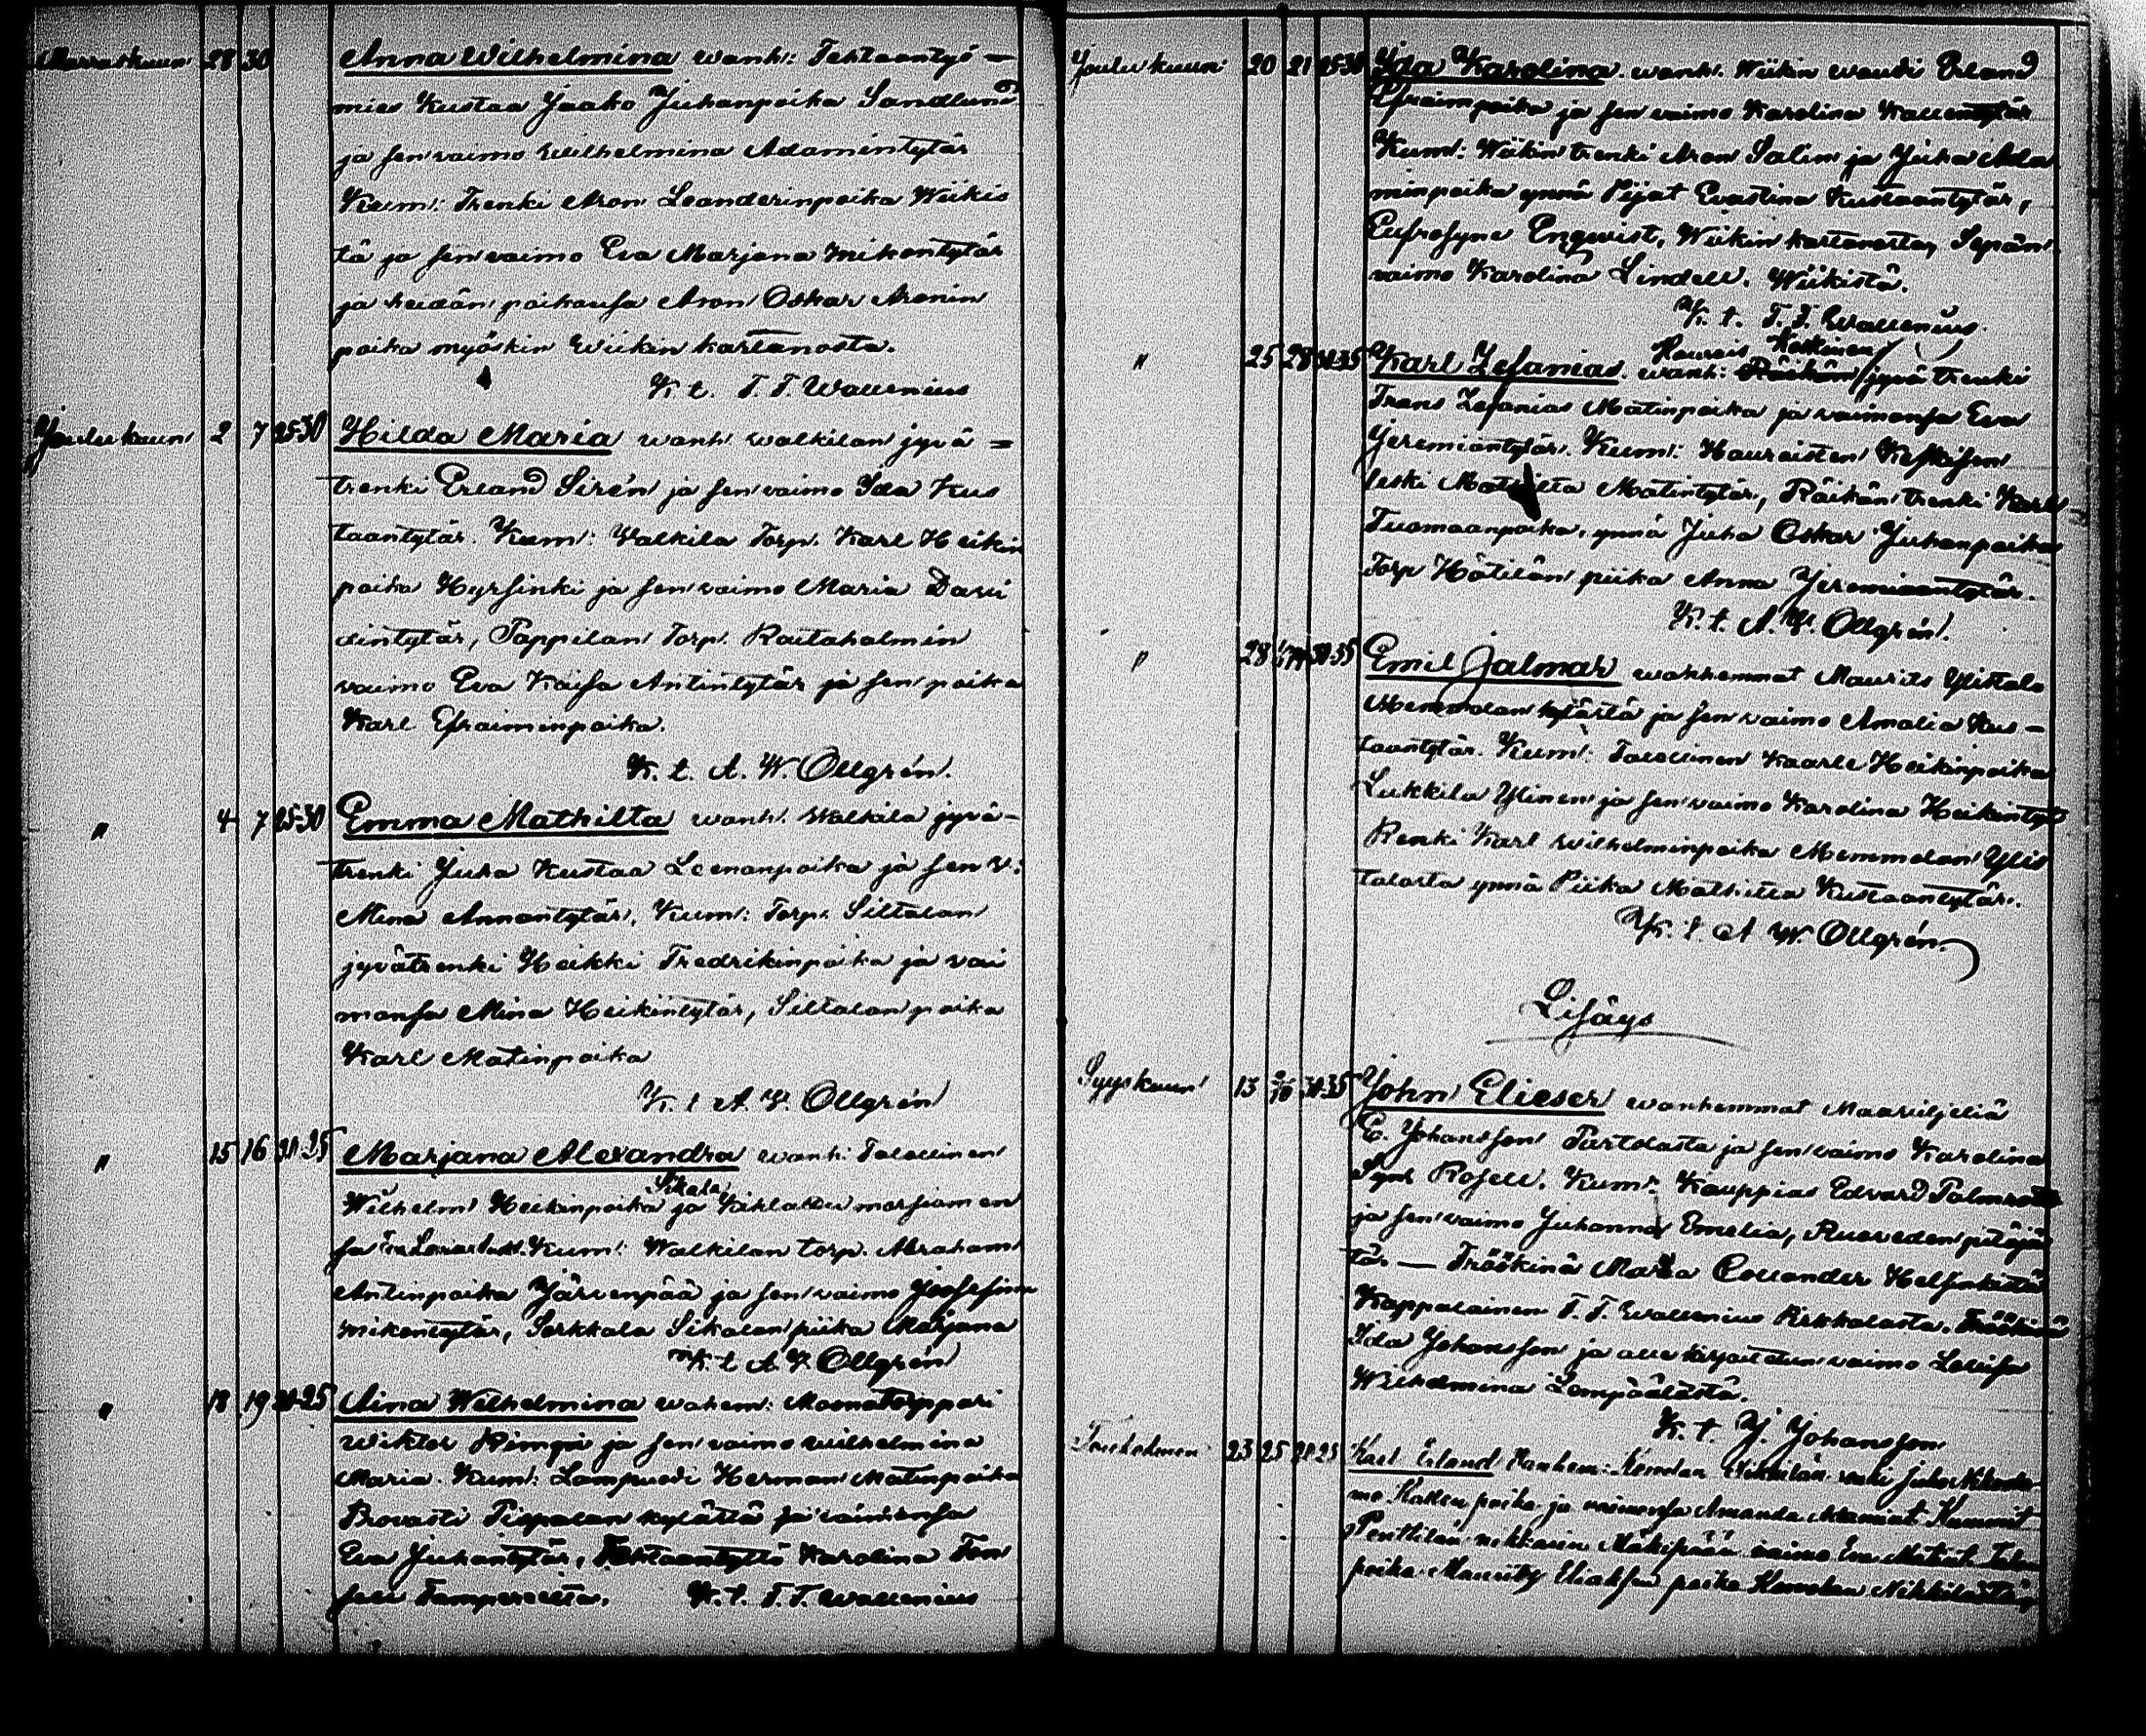 Marraskuun 28 30 Anna Wilhelmina wanh: Tehtaantyö-
mies Kustaa Jaako Juhanpoika Sandlund
ja sen vaimo Wilhelmina Adamintytär
Kum: Trenki Aron Leanderinpoika Wiikis
tä ja sen vaimo Eva Marjana Mikontytär
ja heidän poikansa Aron Oskar Aronin
poika myöskin Wiikin kartanosta.
K. t. F. F. Wallenius
Joulukuun 2 7 25-30 Hilda Maria wanh Walkilan jyvä=
trenki Erland Sirén ja sen vaimo Ida Kus
taantytär. Kum: Walkila Torp. Karl Heikin
poika Hyrsinki ja sen vaimo Maria Davi
dintytär, Pappilan Torp. Raitaholmin
vaimo Eva Kaisa Antintytär ja sen poika
Karl Efraiminpoika.
K. t. A. W. Ollgrén.
" 4 7 25-30 Emma Mathilta wanh. Walkila jyvä-
trenki Juha Kustaa Leenanpoika ja sen v:
Mina Annantytär. Kum: Torp. Siltalan
jyvätrenki Heikki Fredrikinpoika ja vai
monsa Mina Heikintytär, Siltalan poika
Karl Matinpoika
K. t. A. W. Ollgrén
" 15 16 Marjana Alexandra wanh: Talollinen
Sikala
Wilhelm Heikinpoika ja Kihlattu morsiamen
sa Kum: Walkilan torp. Abraham
Antinpoika Järvenpää ja sen vaimo Joosefina
Mikontytär, Sorkkala Sikalan piika Marjana
K. t. A. W. Ollgrén
" 18 19 Aina Wilhelmina wahem: Maamatorppari
Wiktor Rimpi ja sen vaimo Wilhelmina
Maria. Kum: Lampuodi Herman Matinpoika
Provasti Pispalan kylästä ja vaimonsa
Eva Juhantytär, Tehtaantyttö Karolina Fon
sell Tampereelta. K. t. F. F. Wallenius
Joulukuun 20 21 25-30 Ida Karolina. wanh. Wiikin woudi Erland
Efraimpoika ja sen vaimo Karolina Kallentytär
Kum: Wiikin trenki Aron Salin ja Juha Ada
minpoika ynnä Piijat Evastina Kustaantytär,
Eufrosyne Enqwist, Wiikin kartanosta, Sepän
vaimo Karolina Lindell. Wiikistä.
K. t. F. F. Wallenius.
Keskinen
" 25 28 30-35 Karl Zefanias. wanh: jyvä trenki
Frans Zefanias Matinpoika ja vaimonsa Eva
Jeremiantytär. Kum: Hauraisten Keskisen
leski Mathilta Matintytär, Räikän trenki Karl
Tuomaanpoika, ynnä Juha Oskar Juhanpoika
Torp Hätilän piika Anna Jeremiaantytär.
K. t. A. W. Ollgrén.
" 28 30-35 Emil Jalmar wanhemmat Maurits Ylistalo
Memmolan kylästä ja sen vaimo Amalia Kus-
taantytär. Kum: Talollinen Kaarle Heikinpoika
Lukkila Ylinen ja sen vaimo Karolina Heikintyt
Renki Karl Wilhelminpoika Memmolan Ylis
talosta ynnä Piika Mathilta Kustaantytär.
K. t. A W. Ollgrén.
Lisäys
Syyskuun 13 30-35 John Elieser wanhemmat Maanviljeliä
E. Johansson Partolasta ja sen vaimo Karolina
Rosell. Kum: Kauppias Edvard Palmroth
ja sen vaimo Juhanna Emelia, Ruoveden pitäjäs
tä. — Fröökinä Maria Collander Helsinkistä
Kappalainen F. F. Wallenius Pirkkalasta. Fröökinä
Ida Johansson ja allekirjoitetun vaimo Lovisa
Wilhelmina Lempäälästä.
K. t. J. Johansson
23 25 Karl Erland Wanhem: Nikkilän renki Juha
Kallen poika ja vaimonsa Amanda Kummit
Penttilän nikkarin Mäkipään vaimo Eva
poika Mauritz Eliaksen poika Nikkilästä